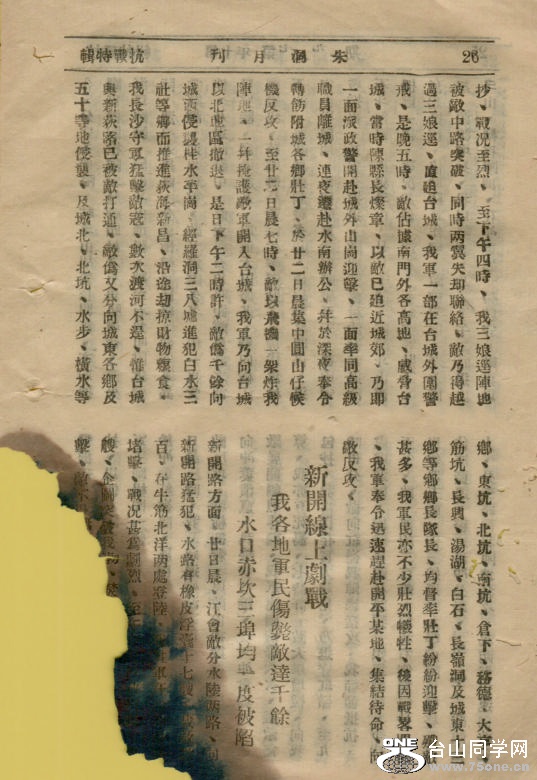 26
朱洞月刊
抗戰特輯
抄、戰况至烈、至下午四時、我三娘廵陣地
被敵中路突破、同時两翼失却聯絡、敵乃得越
過三娘廵、直廹台城、我軍一部在台城外圍警
戒、是晚五時、敵佔據南門外各高地、威脅台
城、當時陳縣長燦章、以敵已迫近城郊、乃即
一面派政警開赴城外山崗迎擊、一面率同高級
職員離城、連夜遷赴水南辦公、幷於深夜奉令
轉飭附城各鄉壯丁、於廿二日晨集中圓山仔候
機反攻、至廿二日晨七時、敵以飛機一架炸我
陣地、一幷掩護敵軍開入台城、我軍乃向台城
以北地區撤退、是日下午二時許、敵僞千餘向
城西侵襲桂水平崗、經羅洞三八墟進犯白水三
社等鄉而推進荻海新昌、沿途刧掠財物糧食、
我長沙守軍猛擊敵寇、數次渡河不逞、惟台城
與新荻路已被敵打通、敵僞又分向城東各鄉及
五十等地侵襲、及城北、北坑、水步、橫水等
鄉、東坑、北坑、南坑、倉下、務德、大
筋坑、長興、湯湖、白石、長嶺洞及城東
鄉等鄉鄉長隊長、均督率壯丁紛紛迎擊、
甚多、我軍民亦不少壯烈犧牲、後因戰畧
、我軍奉令迅速趕赴開平某地、集結待命、向
敵反攻、
新開線上劇戰
我各地軍民傷斃敵達千餘
水口赤坎三埠均一度被陷
新開路方面、廿日晨、江會敵分水陸兩路、向
新開路猛犯、水路有橡皮浮囊十七
百、在牛筋北洋两處登陸、
堵擊、戰况甚爲劇烈、至
艘、企圖突破我
擊、敵不
ONE
台山同学网
www.75one.cn